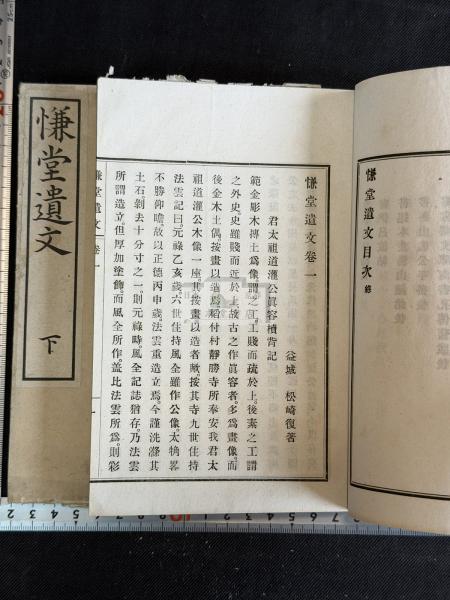 慊堂遺文
下
慊堂遺文目次 終
慊堂遺文卷一
益城 松崎復著
君太祖道灌公眞容櫝背記
範金彫木摶土爲像謂之工工賤而疏於上後素之工謂
之外史史雖賤而近於上故古之作眞容者多爲畫像而
後金木土偶按畫以造焉稻付村靜勝寺所奉安我君太
祖道灌公木像一座其按畫以造者歟按其寺九世住持
法雲記曰元祿乙亥歲六世住持風全雖作公像太牾畧
不勝仰瞻故以正德丙申歲法雲重造立焉今謹洗滌其
土石剝去十分寸之一則元祿時風全記誌猶存乃法雲
所謂造立但厚加塗飾而風全所作蓋比法雲所爲則彩
慊堂遺文 卷一
一